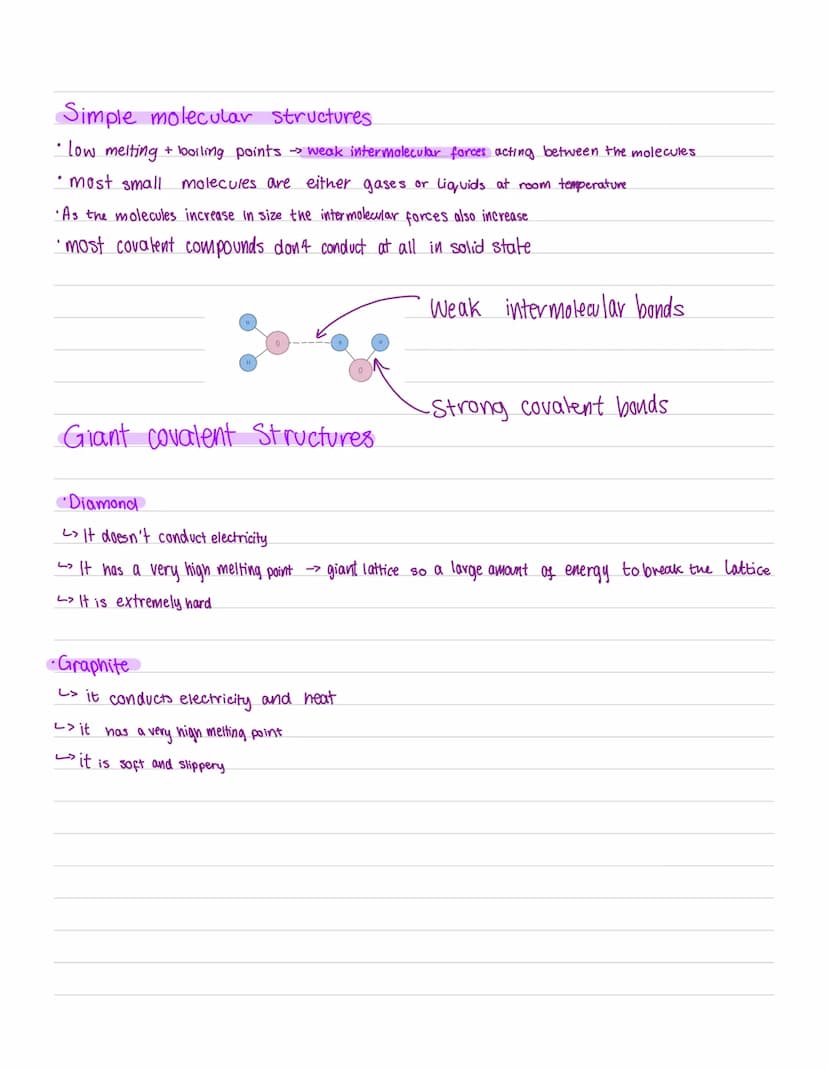 Simple molecular structures
• low melting + boiling points → weak intermolecular forces acting between the molecules
• most small molecules are either gases or liquids at room temperature
• As the molecules increase in size the intermolecular forces also increase
• most covalent compounds don't conduct at all in solid state
Weak intermolecular bonds
H
O
H
H
H
O
Strong covalent bonds
Giant covalent structures
• Diamond
↳ It doesn't conduct electricity
↳ It has a very high melting point → giant lattice so a large amount of energy to break the lattice
↳ It is extremely hard
• Graphite
↳ it conducts electricity and heat
↳ it has a very high melting point
↳ it is soft and slippery